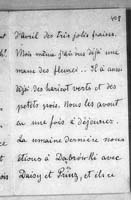 408
d'avril des très jolis fraises.
Moi même j'ai vu déjà une
masse des fleures. Il a aussi
déjà des haricot verts et des
petits pois. Nous les avont
eu une fois à déjeuner.
La semaine dernière nous
étions à Dąbrówki avec
Daisy et Prinz, et chez